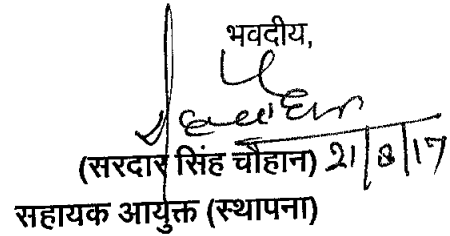 भवदीय,
(सरदार सिंह चौहान) 21/8/17
सहायक आयुक्त (स्थापना)